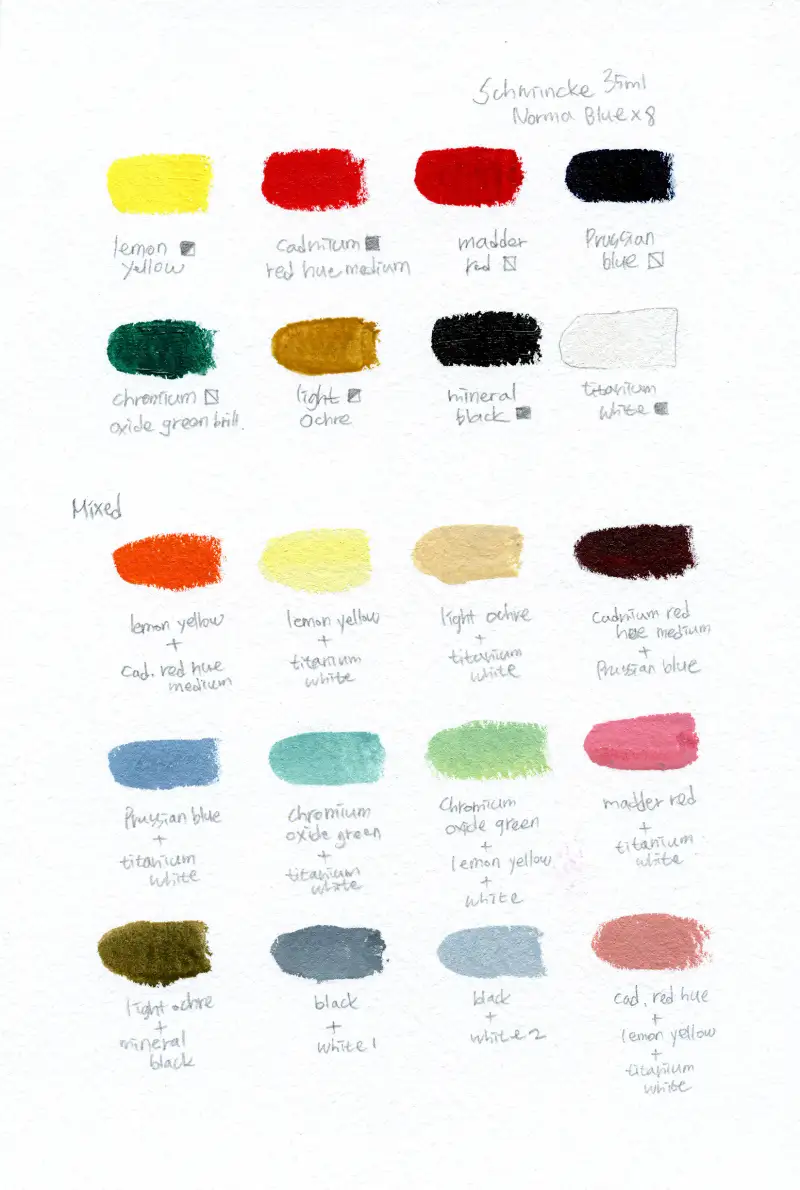 Schmincke 35ml
Norma Blue x 8
lemon
yellow
cadmium
red hue medium
madder
red
Prussian
blue
chromium
oxide green brill.
light
ochre
mineral
black
titanium
white
Mixed
lemon yellow
+
cad. red hue
medium
lemon yellow
+
titanium
white
light ochre
+
titanium
white
cadmium red
hue medium
+
Prussian blue
Prussian blue
+
titanium
white
chromium
oxide green
+
titanium
white
Chromium
oxide green
+
lemon yellow
+
white
madder red
+
titanium
white
light ochre
+
mineral
black
black
+
white 1
black
+
white 2
cad. red hue
+
lemon yellow
+
titanium
white